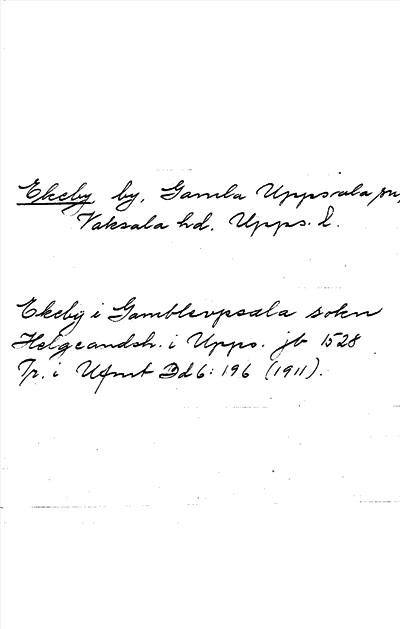 Ekeby by, Gamla Uppsala sn,
Vaksala hd, Upps. l.
Ekeby i Gamblevpsala sokn
Helgeandsh. i Upps. jb 1528
Tr. i Ufmt Bd 6: 196 (1911).